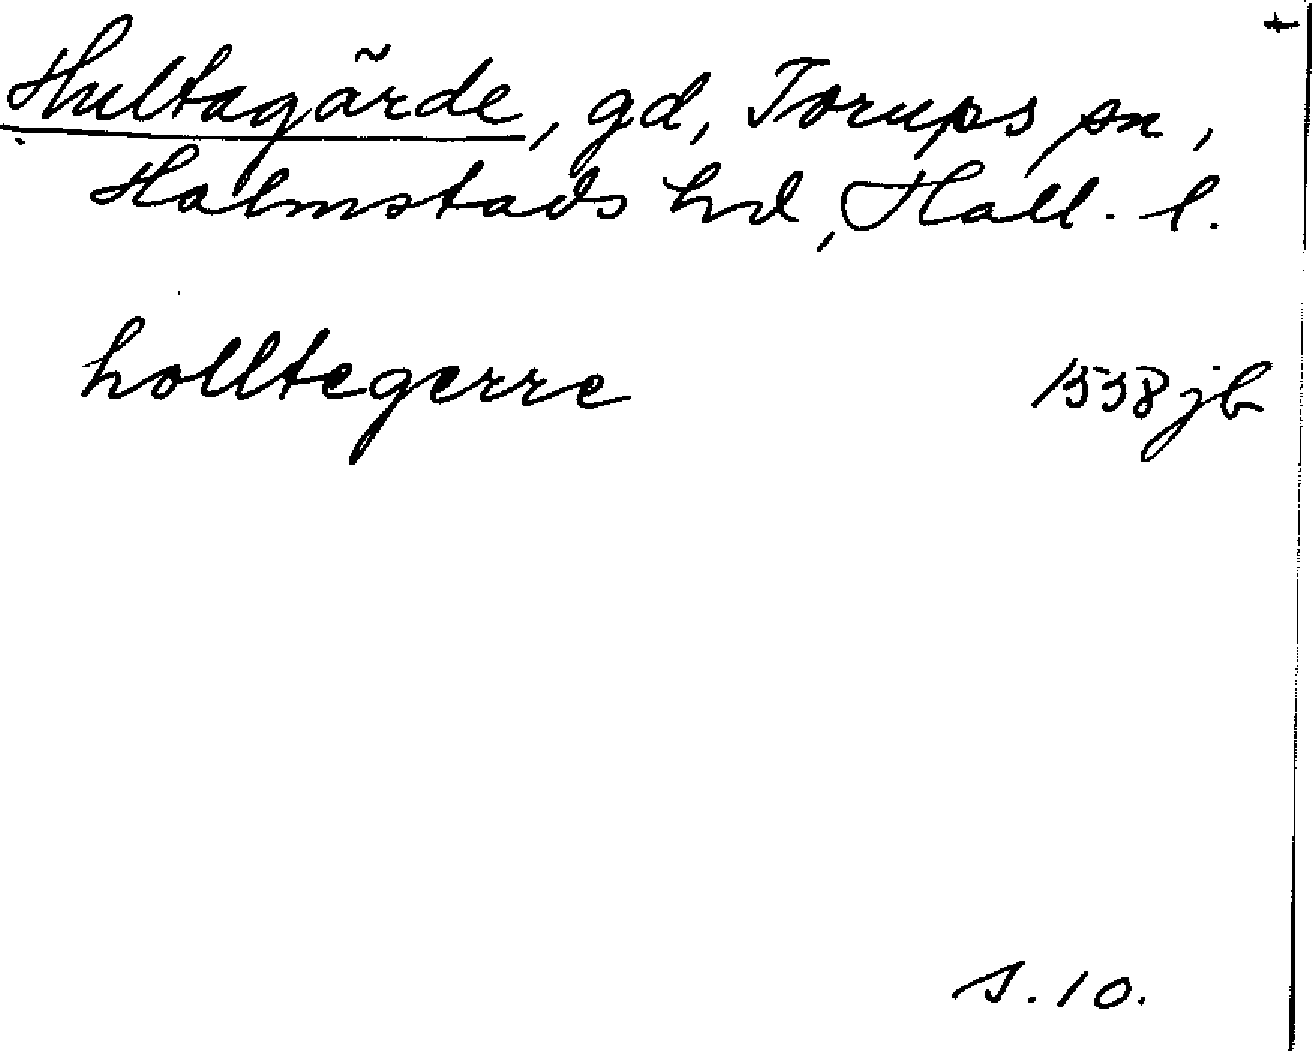 Hultagärde, gd, Torups sn,
Halmstads hd, Hall. l.
holltegerre 1558 jb
s. 10.